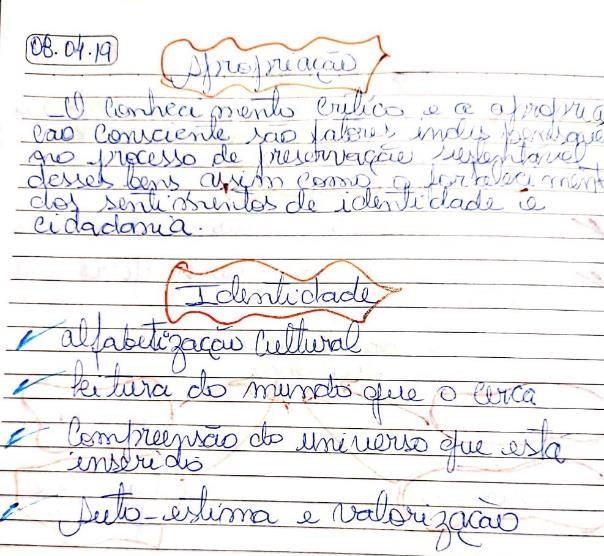 08.04.19
Apropriação
O conhecimento crítico e a apropria
ção consciente são fatores indispensáve
no processo de preservação sustentável
desses bens assim como o fortaleciment
dos sentimentos de identidade e
cidadania.
Identidade
alfabetização cultural
leitura do mundo que o cerca
Compreensão do universo que está
inserido
Auto-estima e valorização